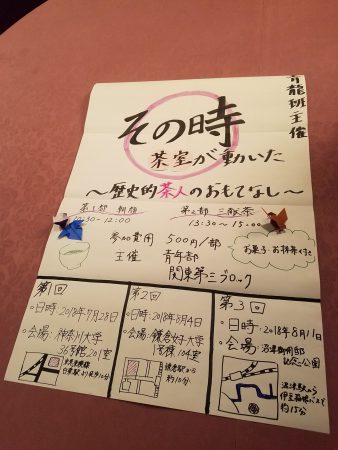 青龍班主催
その時
茶室が動いた
〜歴史的茶人のおもてなし〜
第1部 朝顔
10:30-12:00
第2部 三献茶
13:30〜15:00
参加費用 500円/部
主催 青年部
関東第三ブロック
お菓子・お抹茶付き
第1回
・日時:2018年7月28日
・会場:神奈川大学
36号館201室
第2回
・日時:2018年8月4日
・会場:鎌倉女子大学
104室
鎌倉駅から
約10分
第3回
・日時:2018年8月11日
・会場:沼津御用邸
記念公園
沼津駅から
伊豆箱根バスで
約15分